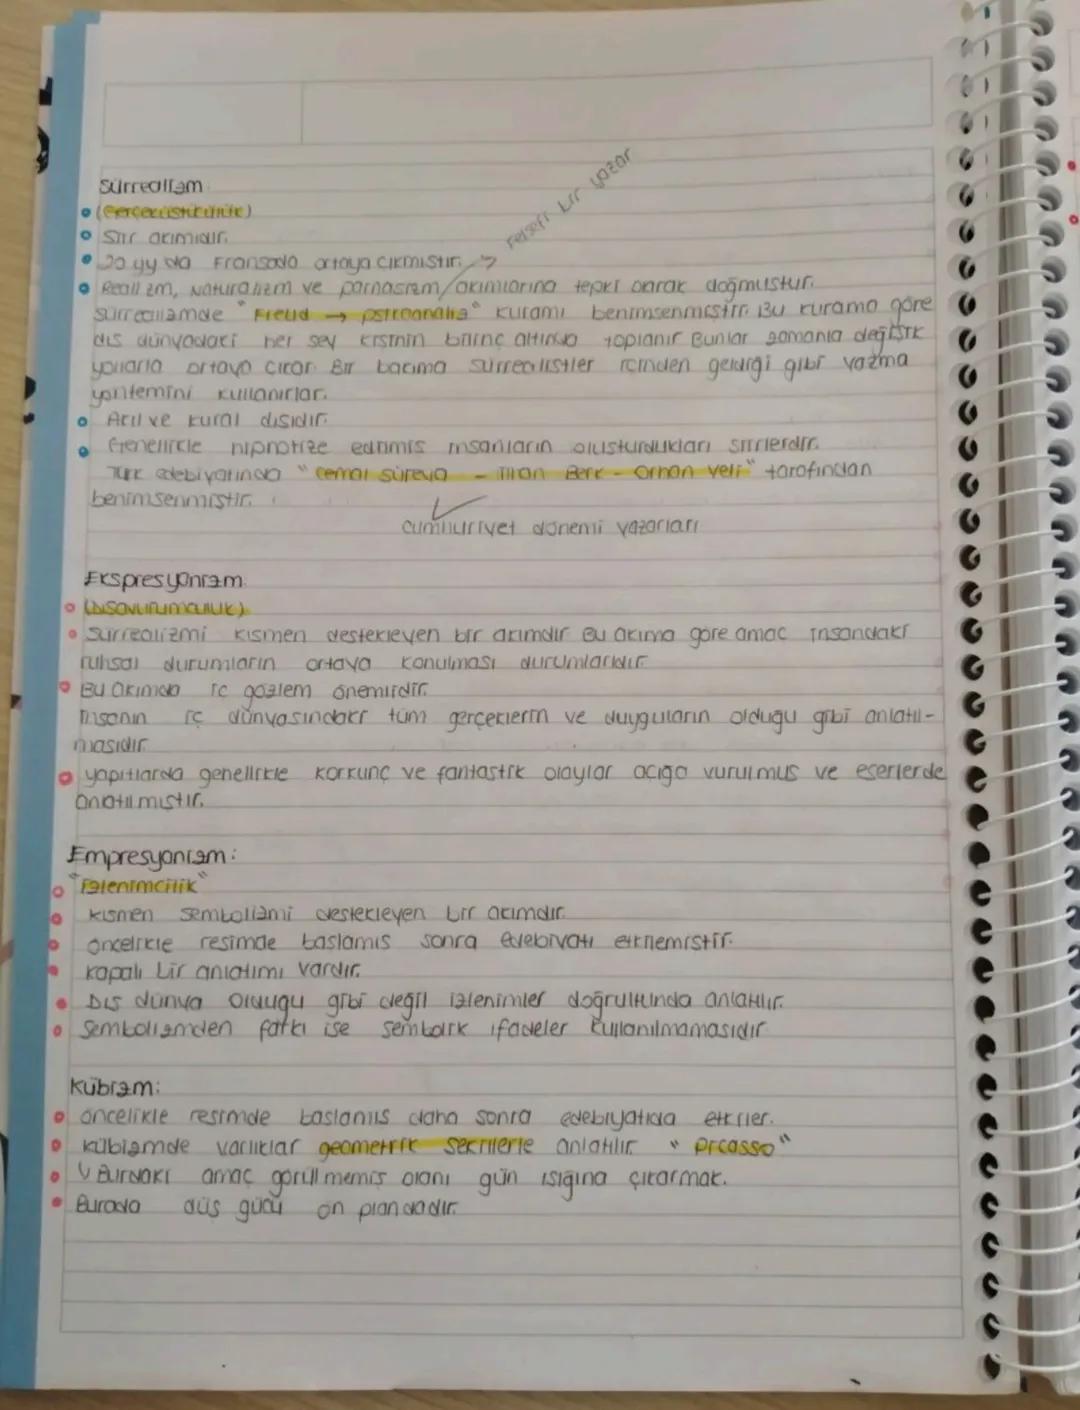 Sürrealizm:
(Gerçeküstücülük)
Şiir akımıdır.
20 yy da Fransada ortaya cıkmıstır.
felsefi bir yazar
Realizm, Naturalizm ve parnasizm akımlarına tepki olarak doğmustur.
Sürrealizmde "Freud → psikoanaliz" kuramı benimsenmiştir. Bu kurama göre
dıs dünyadaki her sey kisinin bilinç altında toplanır Bunlar zamanla değişik
yollarla ortaya çıkar. Bir bakıma Sürrealistler içinden geldiği gibi yazma
yöntemini kullanırlar.
Akıl ve kural dısıdır.
Genellikle hipnotize edilmis insanların olusturdukları siirlerdir.
Türk edebiyatında "Cemal Süreya - İlhan Berk - Orhan Veli" tarafından
benimsenmiştir.
Cumhuriyet dönemi yazarları
Ekspresyonizm:
(Dısavurumculuk)
Sürrealizmi kısmen destekleyen bir akımdır Bu akıma göre amac insandaki
ruhsal durumların ortaya konulması durumlarıdır.
Bu akımda iç gözlem önemlidir.
İnsanın iç dünyasındaki tüm gerçeklerin ve duyguların olduğu gibi anlatıl-
masıdır
yapıtlarda genellikle korkunç ve fantastik olaylar açığa vurulmus ve eserlerde
anlatılmıştır.
Empresyonizm:
"İzlenimcilik"
kısmen Sembolizmi destekleyen bir akımdır.
öncelikle resimde baslamıs sonra edebiyatı etkilemistir.
kapalı bir anlatımı vardır.
Dıs dünya olduğu gibi değil izlenimler doğrultunda anlatılır.
Sembolizmden farkı ise sembolik ifadeler kullanılmamasıdır
Kübizm:
öncelikle resimde baslamıs daha sonra edebiyatıda etkiler.
kübizmde varlıklar geometrik sekillerle anlatılır. "Picasso"
Burdaki amaç görülmemiş olanı gün ısığına çıkarmak.
Burada düş gücü ön plandadır.